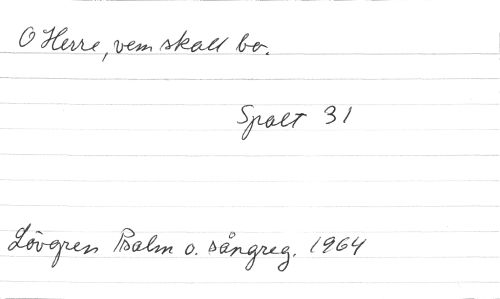 O Herre, vem skall bo.
Spalt 31
Lövgren Psalm o. sångreg. 1964